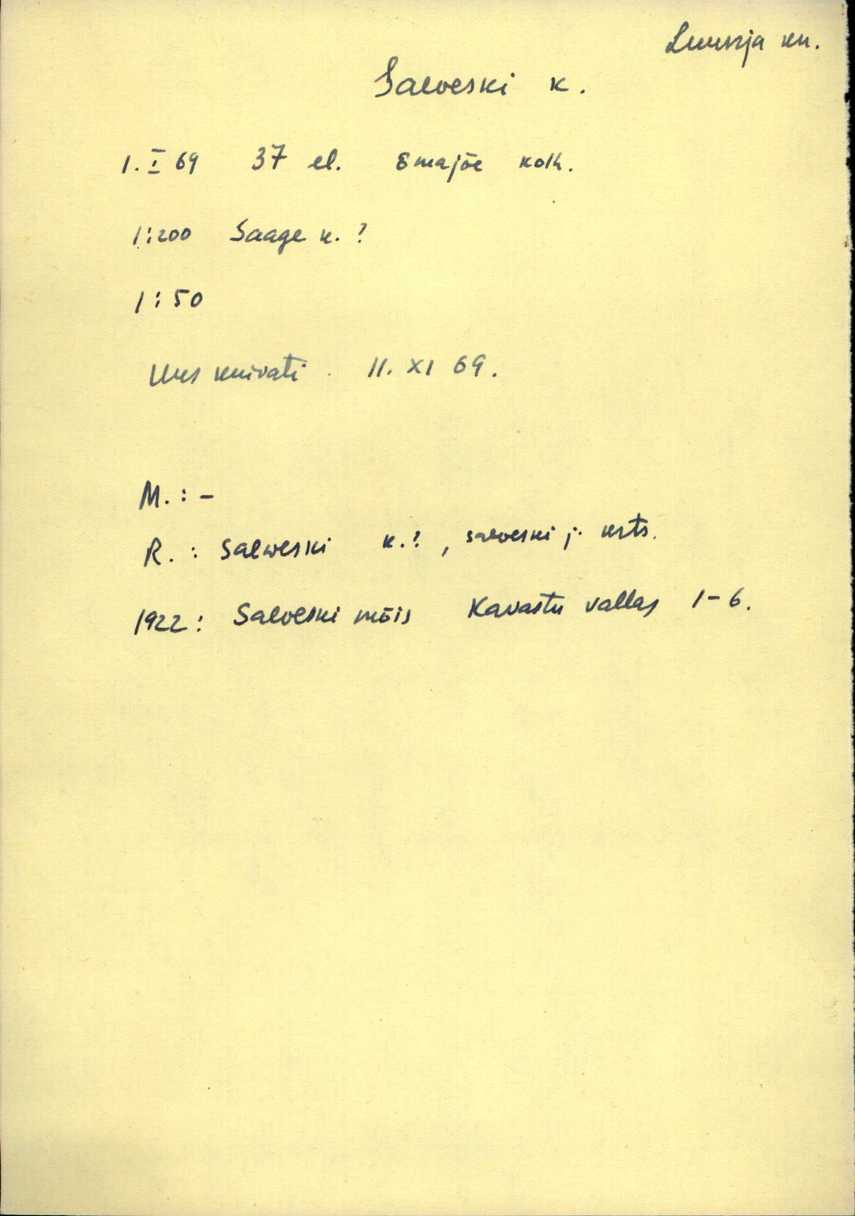 Luunja kn.
Salveski k.
1. I 69 37 el. Emajõe kolh.
1:200 Saage k. ?
1:50
Uus kuivati. 11. XI 69.
M. : –
R. : Salweski k.? , Salveski j. krts.
1922: Salveski mõis Kavastu vallas 1-6.